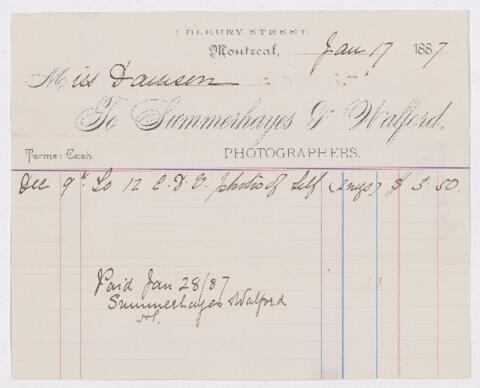 BLEURY STREET.
Montreal, Jan 17 1887
Miss Dawson
To Summerhayes & Walford,
PHOTOGRAPHERS.
Terms: Cash.
Dec 9th To 12 C.D.V. photos of Self $ 3.50.
Paid Jan 28/87
Summerhayes & Walford